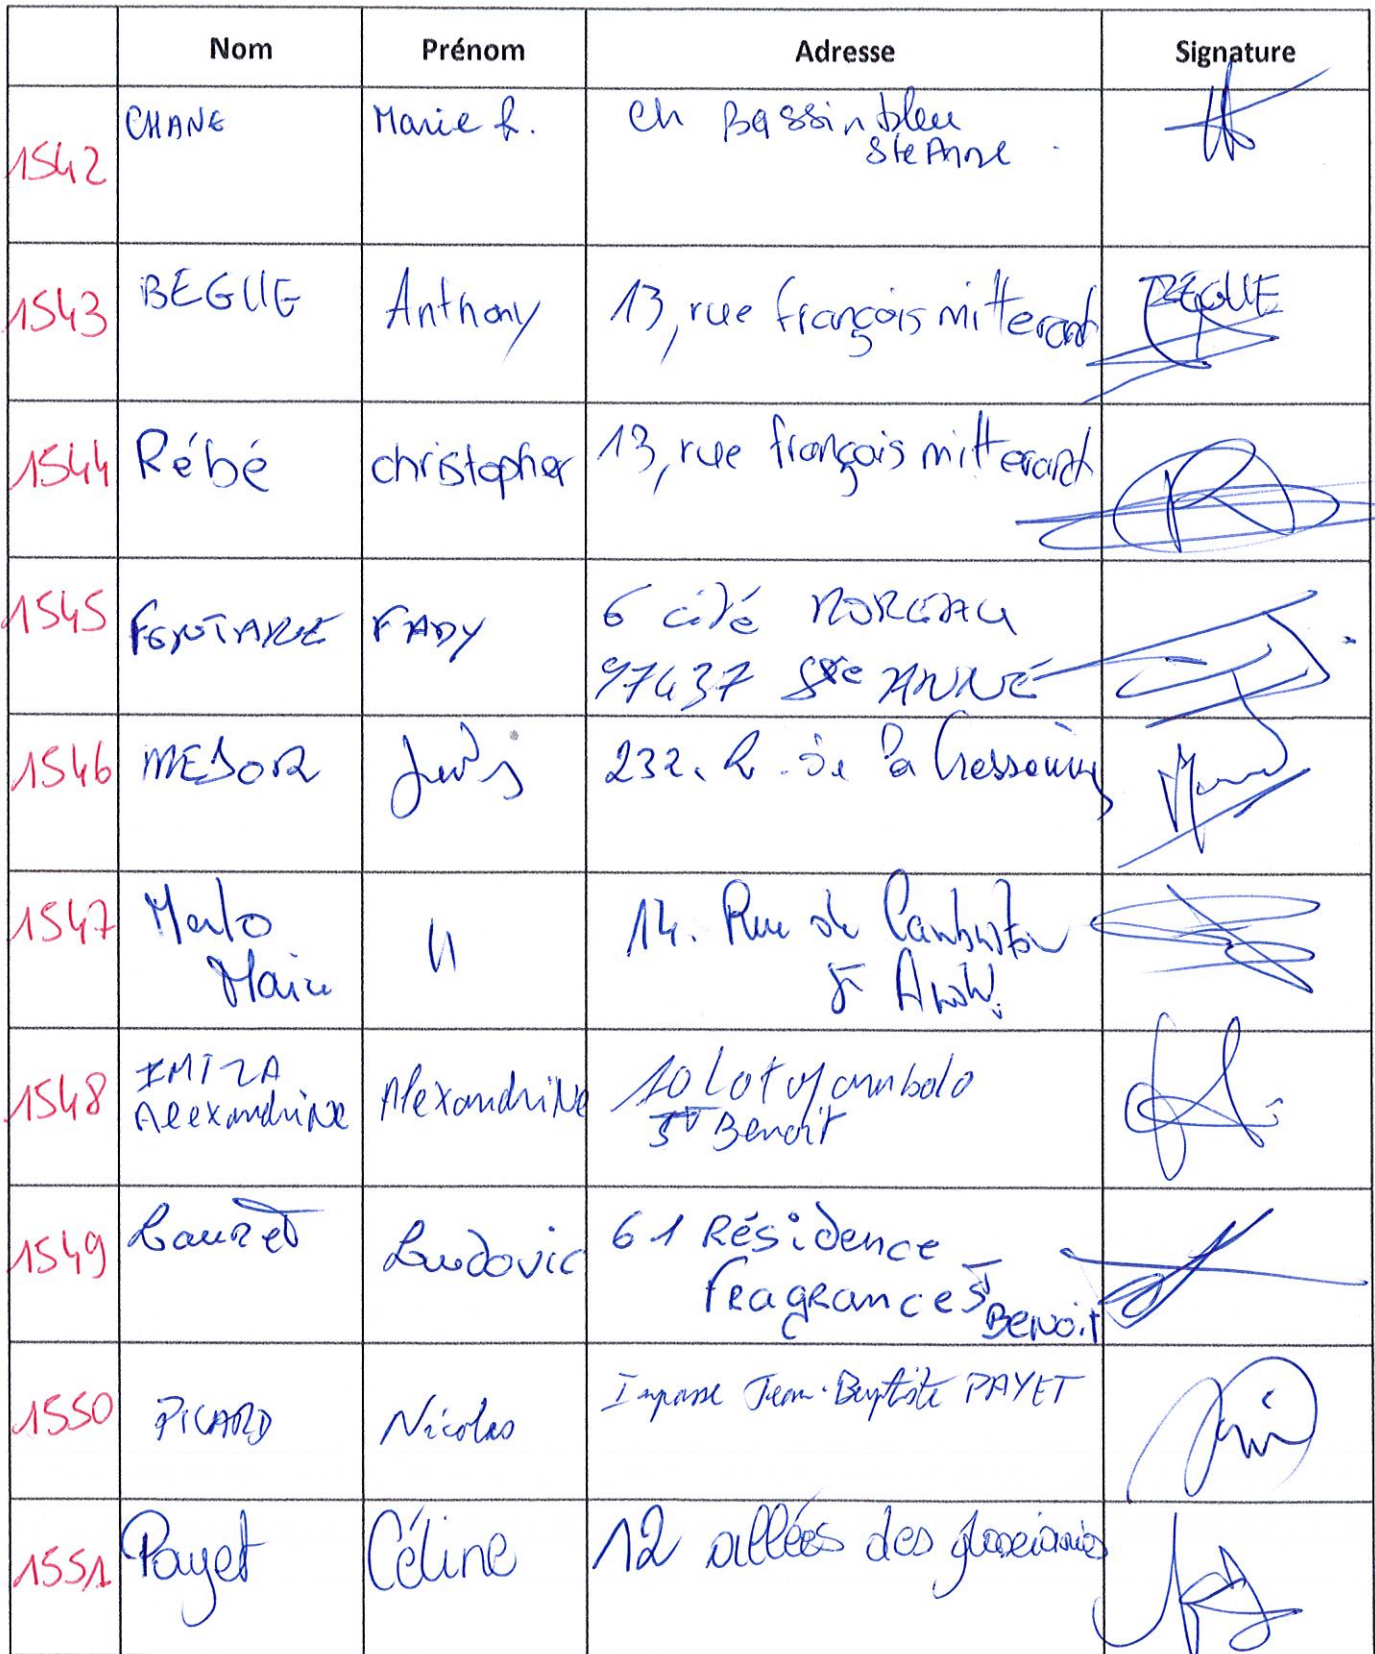 Nom Prénom Adresse Signature
1542 CHANE Marie h. Ch Bassin bleu
Ste Anne
1543 BEGUE Anthony 13, rue françois mitterant BEGUE
1544 Rébé christopher 13, rue françois mitterant
1545 FONTAINE FADY 6 cité MORGEAU
97437 Ste ANNE
1546 MEDOR 232. R. de la Cressonnière
1547
Marie 14. Rue de Cambuston
St André
1548 IMIZA Alexandrine 10 Lot yambolo
Alexandrine St Benoit
1549 Lauret Ludovic 61 Résidence
fragrance St
Benoit
1550 PICARD Nicolas Impasse Jean-Baptiste PAYET
1551 Payet Céline 12 allées des